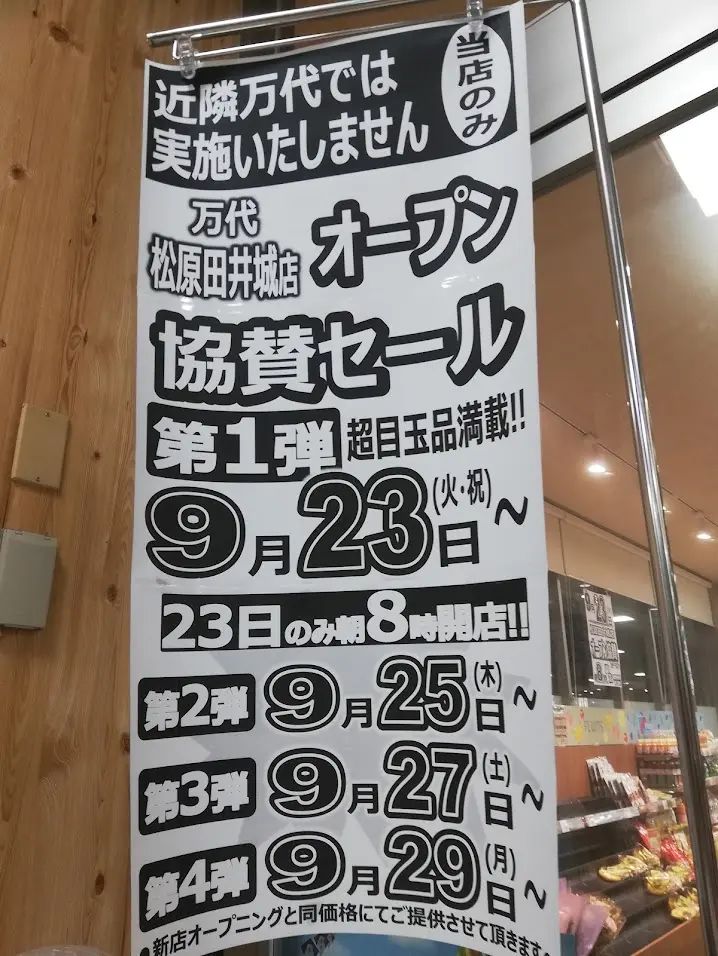 当店のみ
近隣万代では
実施いたしません
万代
松原田井城店
オープン
協賛セール
第1弾 超目玉品満載!!
9月23日(火・祝)~
23日のみ朝8時開店!!
第2弾 9月25日(木)~
第3弾 9月27日(土)~
第4弾 9月29日(月)~
●新店オープニングと同価格にてご提供させて頂きます